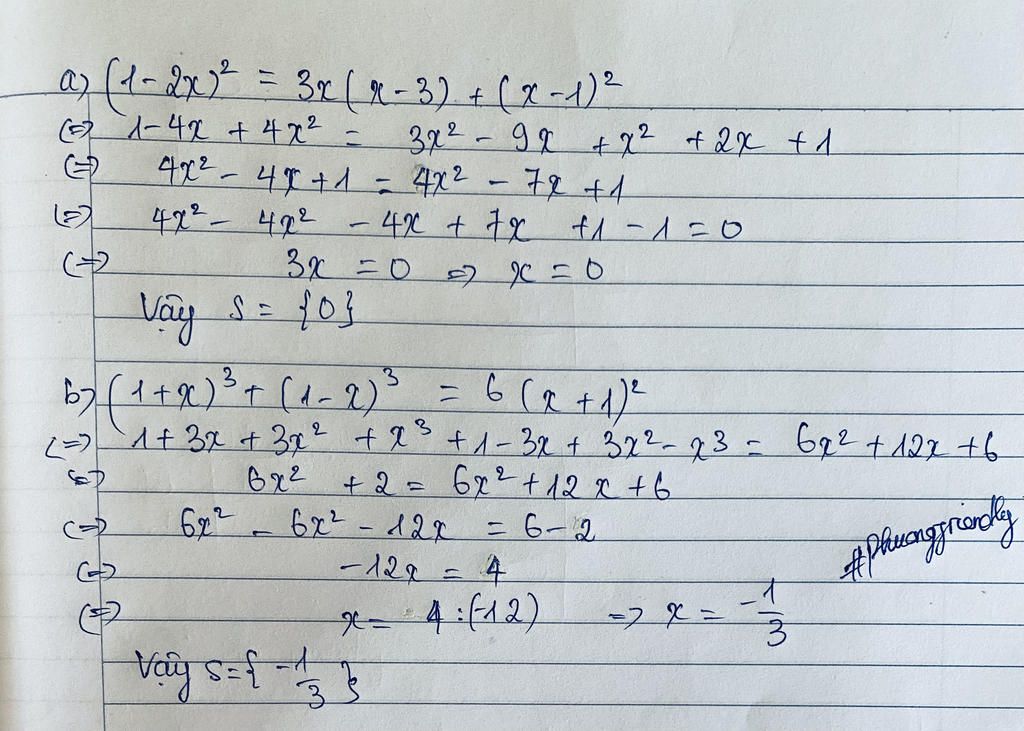 a) (1-2x)² = 3x(x-3) + (x-1)²
(=) 1-4x + 4x² = 3x² - 9x + x² + 2x + 1
(=) 4x² - 4x + 1 = 4x² - 7x + 1
(=) 4x² - 4x² - 4x + 7x + 1 - 1 = 0
(=) 3x = 0 => x = 0
Vậy S = {0}
b) (1+x)³ + (1-x)³ = 6(x+1)²
(=) 1 + 3x + 3x² + x³ + 1 - 3x + 3x² - x3 = 6x² + 12x + 6
(=) 6x² + 2 = 6x² + 12x + 6
(=) 6x² - 6x² - 12x = 6 - 2
(=) -12x = 4
(=) x = 4 : (-12) => x = -1/3
Vậy S = { -1/3 }
#Phuongfriendly